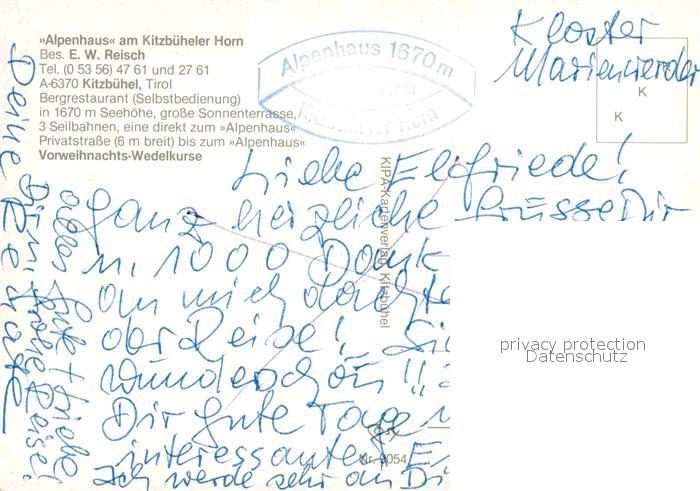 »Alpenhaus« am Kitzbüheler Horn
Bes. E. W. Reisch
Tel. (0 53 56) 47 61 und 27 61
A-6370 Kitzbühel, Tirol
Bergrestaurant (Selbstbedienung)
in 1670 m Seehöhe, große Sonnenterrasse,
3 Seilbahnen, eine direkt zum »Alpenhaus«
Privatstraße (6 m breit) bis zum »Alpenhaus«
Vorweihnachts-Wedelkurse
Alpenhaus 1670 m
Kitzbüheler Horn
Kloster
Marienwerder
K
K
Liebe Elfriede!
Ganz herzliche Grüsse Dir
u. 1000 Dank
an mich dachte
der Reise!
wunderschön!!
Dir gute Tage
interessanten
Ich werde sehr an Di
alles Gute + Liebe
Dir u. frohe Reise!
Deine
KIPA-Kartenverlag, Kitzbühel
Nr. 9054
privacy protection
Datenschutz